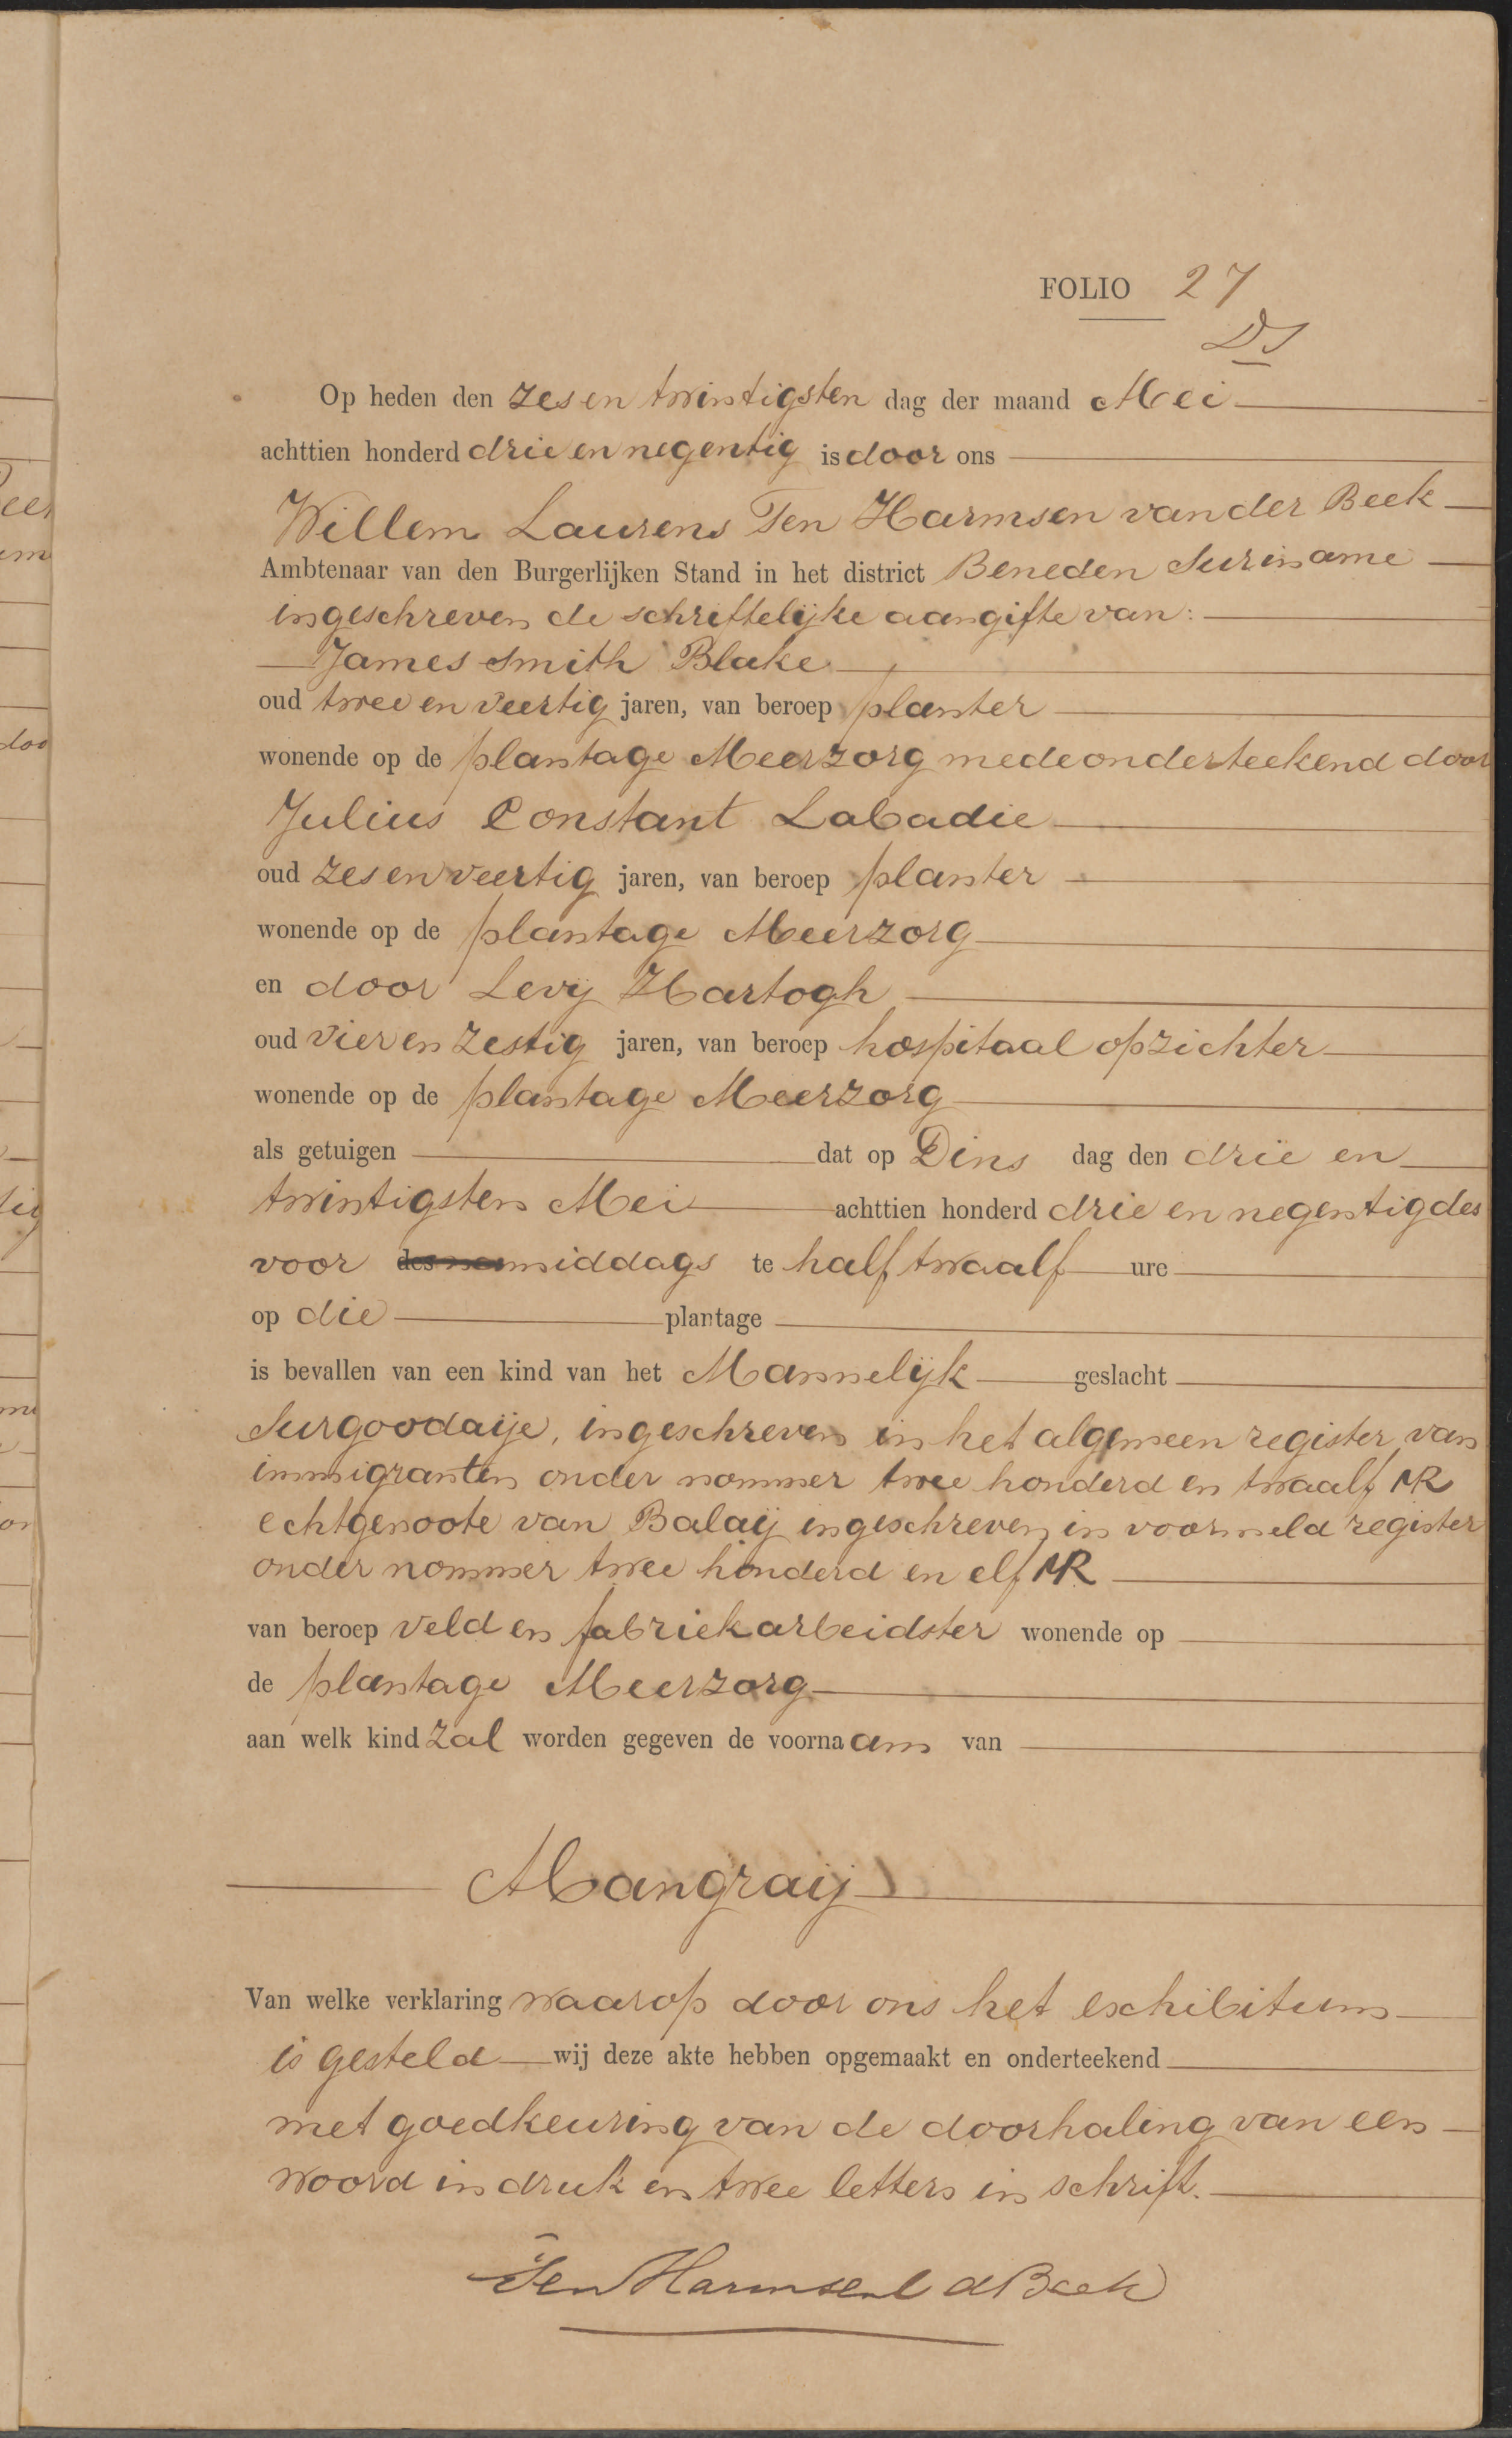 FOLIO 27
DS
Op heden den zes en twintigsten dag der maand Mei
achttien honderd drie en negentig is door ons
Willem Laurens Ten Harmsen van der Beek
Ambtenaar van den Burgerlijken Stand in het district Beneden Suriname
ingeschreven de schriftelijke aangifte van:
James Smith Blake
oud twee en veertig jaren, van beroep planter
wonende op de plantage Meerzorg mede onderteekend door
Julius Constant Labadie
oud zes en veertig jaren, van beroep planter
wonende op de plantage Meerzorg
en door Levij Hartogh
oud vier en zestig jaren, van beroep hospitaal opzichter
wonende op de plantage Meerzorg
als getuigen dat op Dins dag den drie en
twintigsten Mei achttien honderd drie en negentig des
voor des na middags te half twaalf ure
op die plantage
is bevallen van een kind van het Mannelijk geslacht
Surgoodaije, ingeschreven in het algemeen register van
immigranten onder nommer twee honderd en twaalf MR
echtgenoote van Balaij ingeschreven in voormeld register
onder nommer twee honderd en elf MR
van beroep veld en fabriekarbeidster wonende op
de plantage Meerzorg
aan welk kind zal worden gegeven de voornaam van
Mangraij
Van welke verklaring waarop door ons het exhibitum
is gesteld wij deze akte hebben opgemaakt en onderteekend
met goedkeuring van de doorhaling van een
woord in druk en twee letters in schrift.
Ten Harmsen v d Beek